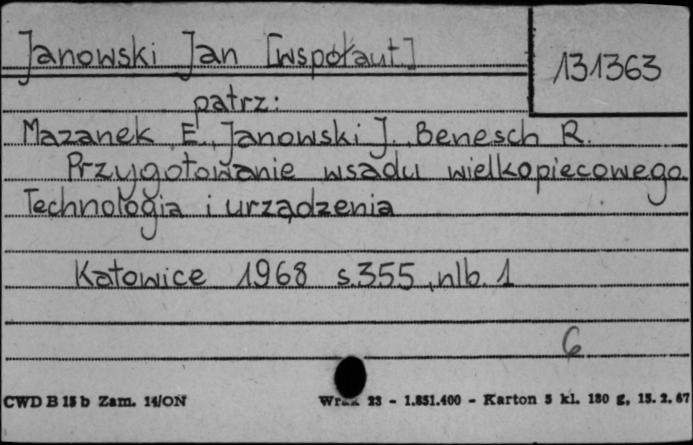 Janowski Jan [współaut.]
131363
patrz:
Mazanek E., Janowski J., Benesch R.
Przygotowanie wsadu wielkopiecowego
Technologia i urządzenia
Katowice 1968 s.355, nlb. 1
6
CWD B 15 b Zam. 14/ON
23 - 1.851.400 - Karton 5 kl. 180 g, 15. 2. 67